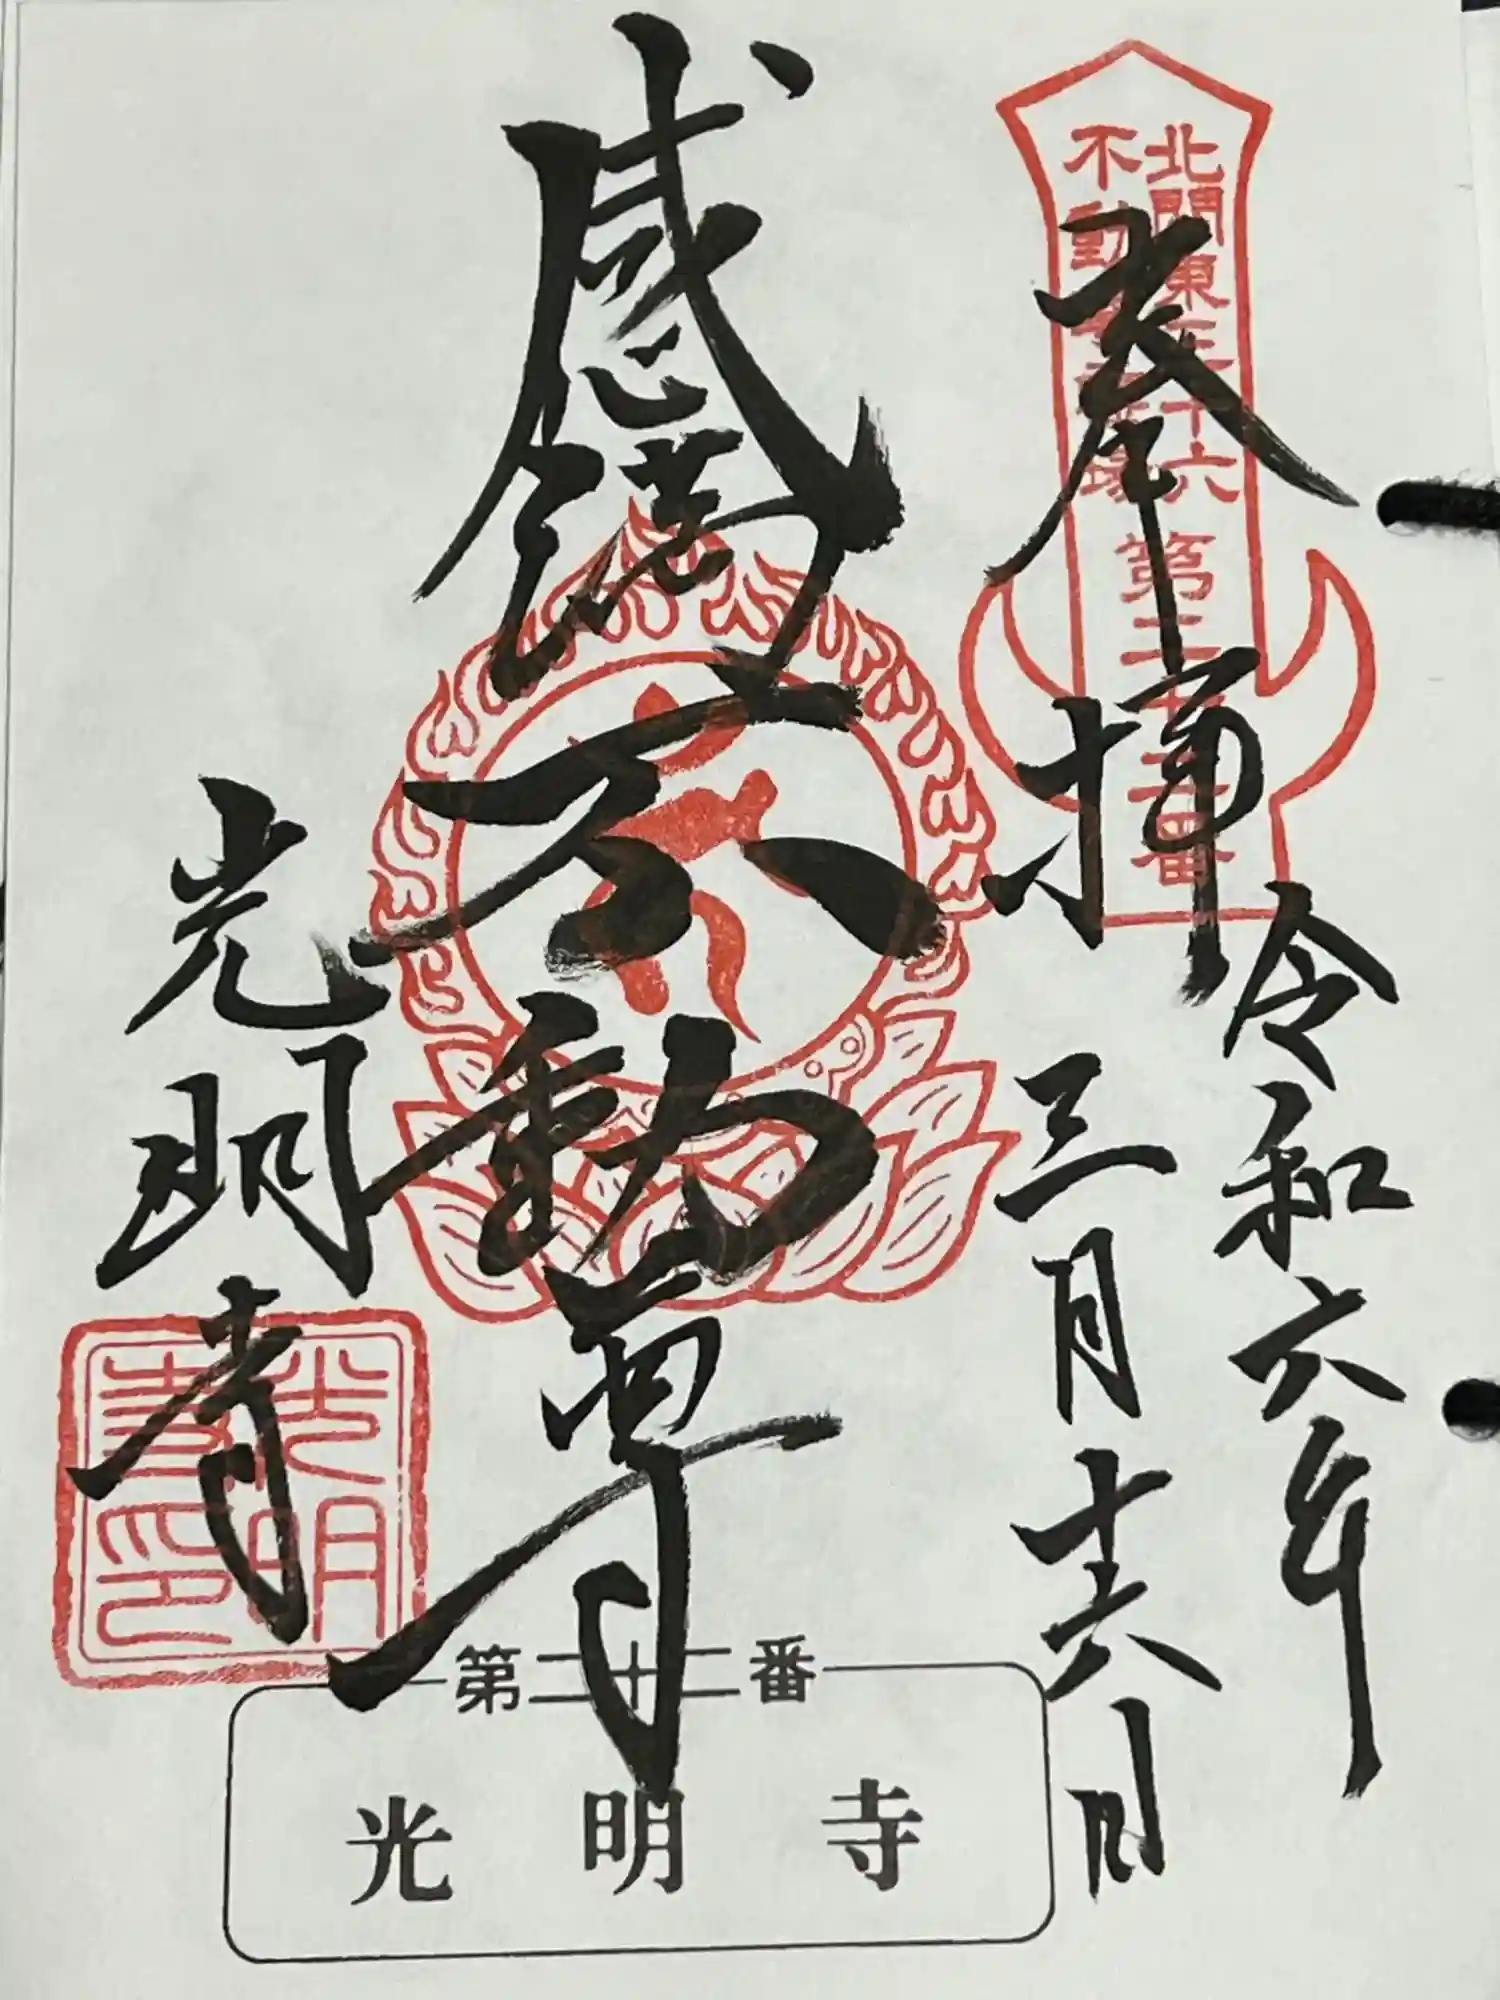 北関東三十六
不動尊霊場
第二十二番
奉拝
令和六年
三月十六日
感満不動尊
光明寺
光明
寺印
第二十二番
光明寺